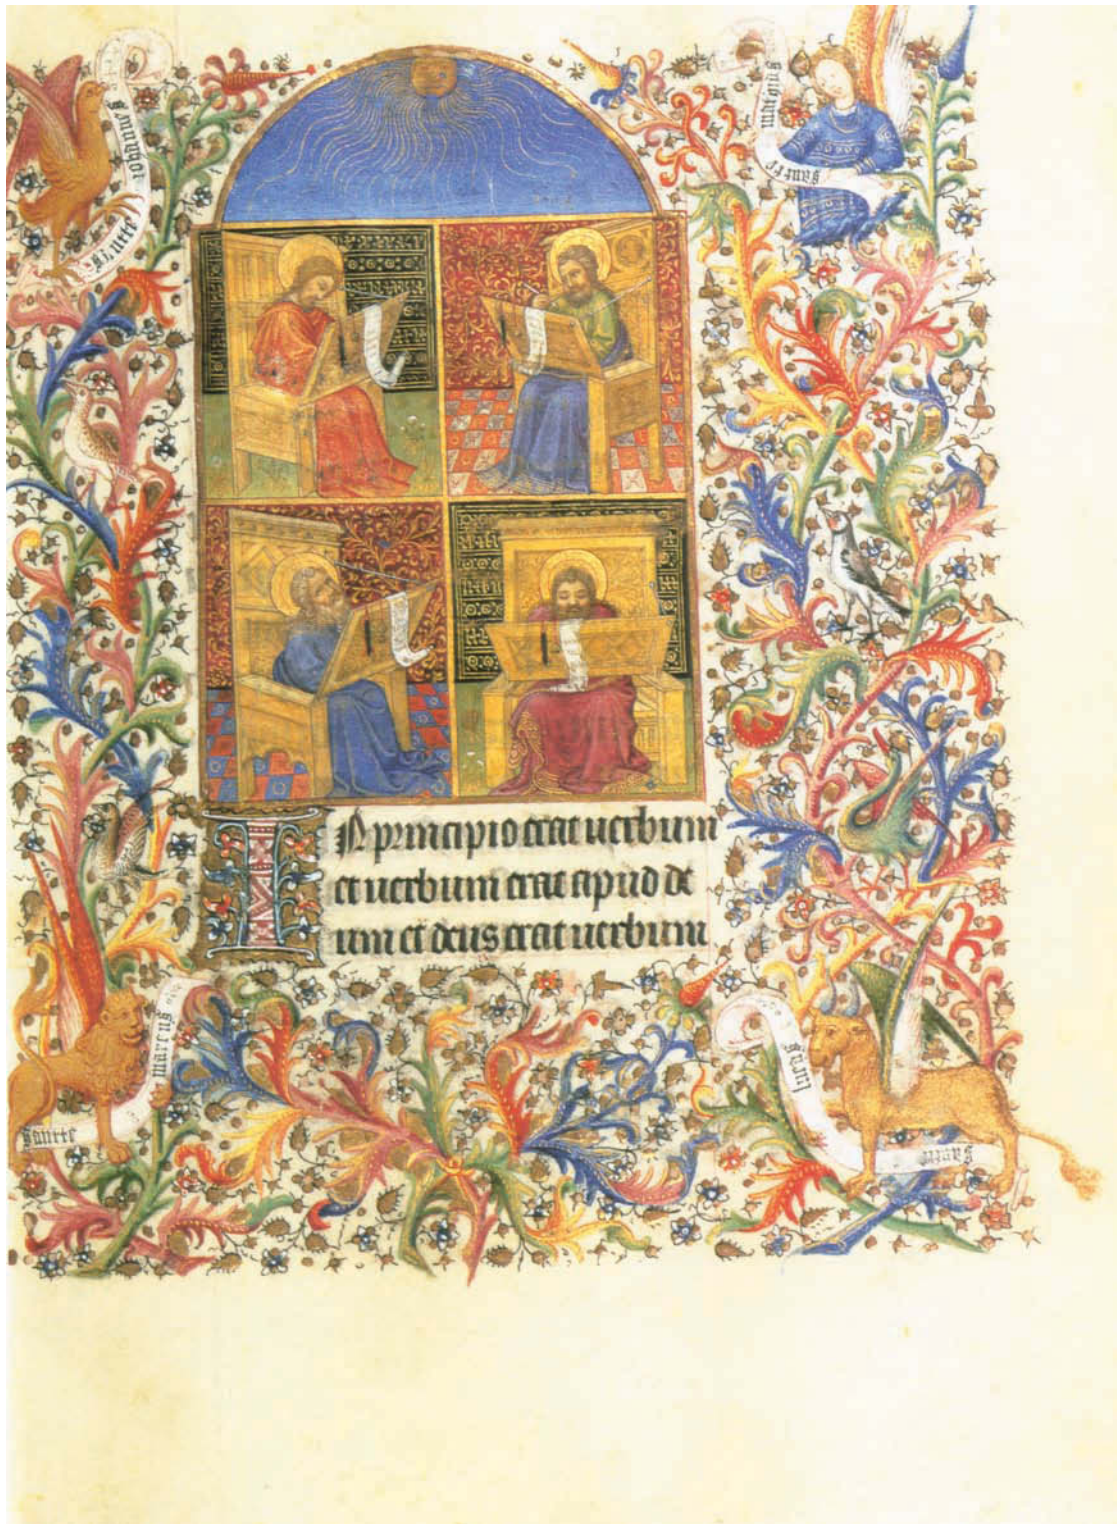 sancte
iohannes
sancte
mateus
In principio erat uerbum
et uerbum erat apud de
um et deus erat uerbum
sancte
marcus
lucas